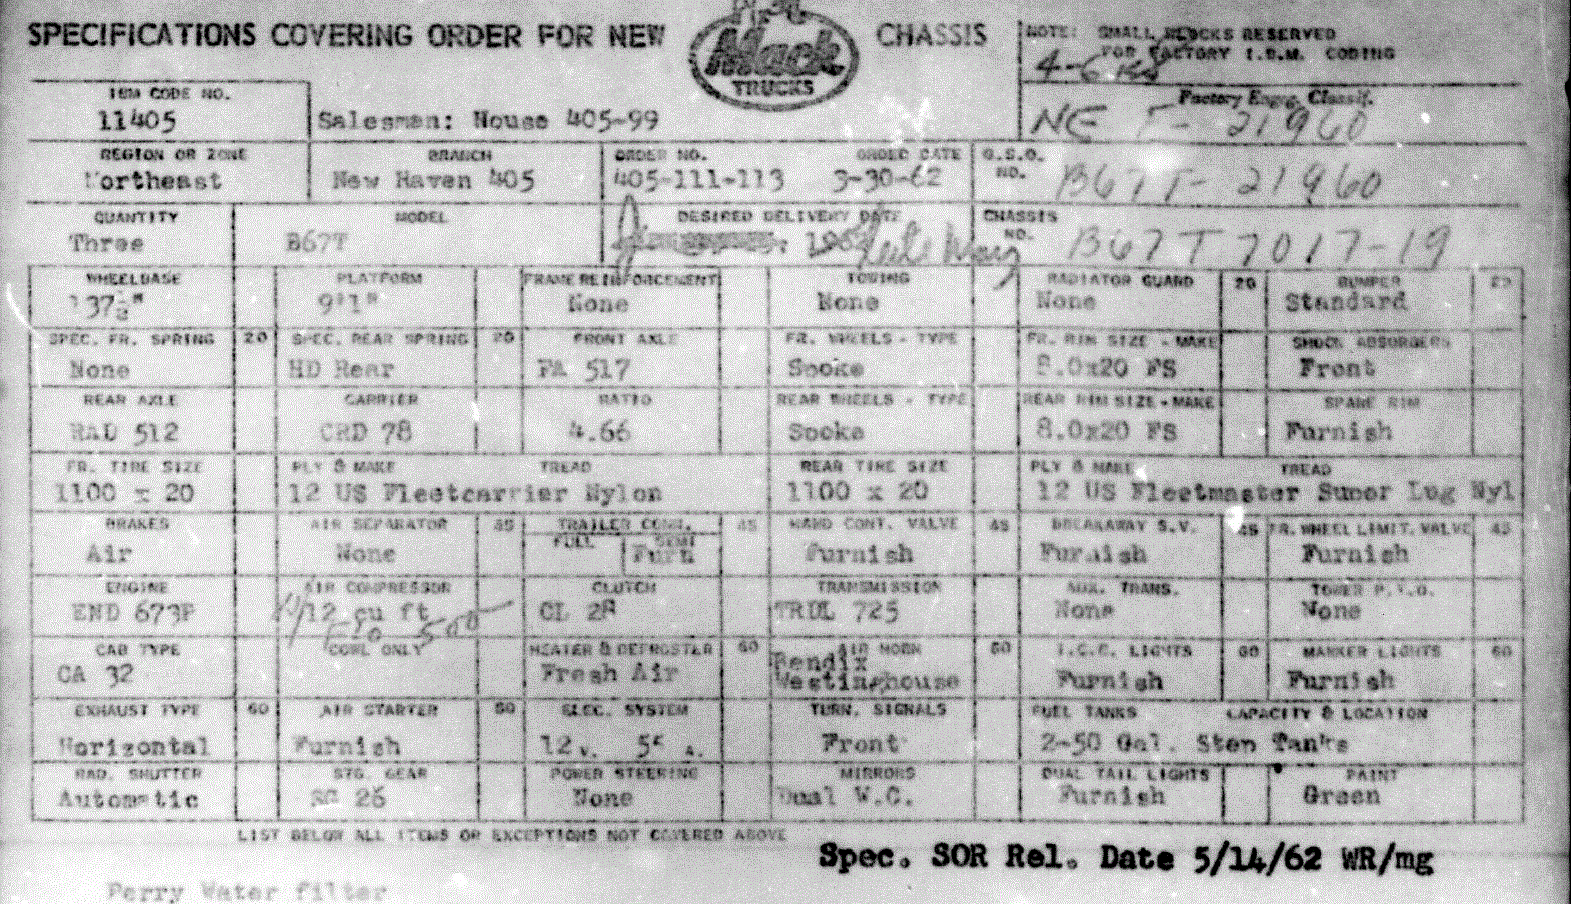 SPECIFICATIONS COVERING ORDER FOR NEW Mack TRUCKS CHASSIS
NOTE: SMALL BLOCKS RESERVED
FOR FACTORY I.B.M. CODING
IBM CODE NO.
11405
Salesman: House 405-99
Factory Engrg. Classif.
NE T- 21960
REGION OR ZONE BRANCH ORDER NO. ORDER DATE G.S.O. NO.
Northeast New Haven 405 405-111-113 3-30-62 B67T- 21960
QUANTITY MODEL DESIRED DELIVERY DATE CHASSIS NO.
Three B67T Late May B67T 7017-19
WHEELBASE PLATFORM FRAME REINFORCEMENT TOWING RADIATOR GUARD 20 BUMPER 25
137½" 9'1" None None None Standard
SPEC. FR. SPRING 20 SPEC. REAR SPRING 20 FRONT AXLE FR. WHEELS - TYPE FR. RIM SIZE - MAKE SHOCK ABSORBERS
None HD Rear FA 517 Spoke 8.0x20 FS Front
REAR AXLE CARRIER RATIO REAR WHEELS - TYPE REAR RIM SIZE - MAKE SPARE RIM
RAD 512 CRD 78 4.66 Spoke 8.0x20 FS Furnish
FR. TIRE SIZE PLY & MAKE TREAD REAR TIRE SIZE PLY & MAKE TREAD
1100 x 20 12 US Fleetcarrier Nylon 1100 x 20 12 US Fleetmaster Super Lug Nyl
BRAKES AIR SEPARATOR 45 TRAILER CONN. 45 HAND CONT. VALVE 45 BREAKAWAY S.V. 45 FR. WHEEL LIMIT. VALVE 45
FULL SEMI
Air None Furn Furnish Furnish Furnish
ENGINE AIR COMPRESSOR CLUTCH TRANSMISSION AUX. TRANS. TOWER P.T.O.
END 673P 12 cu ft CL 28 TRDL 725 None None
500
CAB TYPE COWL ONLY HEATER & DEFROSTER 60 AIR HORN 60 I.C.C. LIGHTS 60 MARKER LIGHTS 60
CA 32 Fresh Air Bendix Westinghouse Furnish Furnish
EXHAUST TYPE 60 AIR STARTER 60 ELEC. SYSTEM TURN. SIGNALS FUEL TANKS CAPACITY & LOCATION
Horizontal Furnish 12 V. A. Front 2-50 Gal. Step Tanks
RAD. SHUTTER STG. GEAR POWER STEERING MIRRORS DUAL TAIL LIGHTS PAINT
Automatic SG 26 None Dual W.C. Furnish Green
LIST BELOW ALL ITEMS OR EXCEPTIONS NOT COVERED ABOVE
Spec. SOR Rel. Date 5/14/62 WR/mg
Perry Water filter